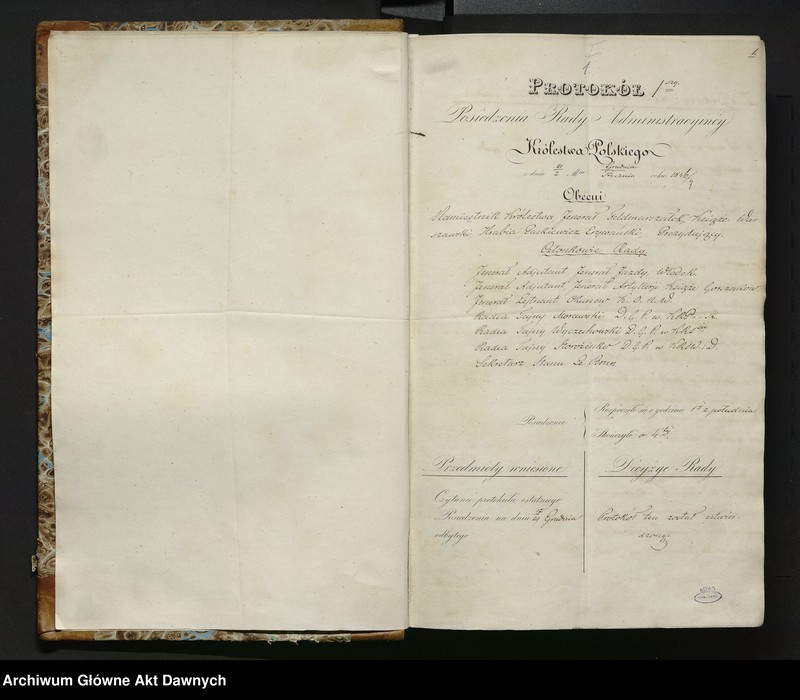 1.
1.
PROTOKÓŁ 1szy.
Posiedzenia Rady Administracyjnéy
Królestwa Polskiego
z dnia 21/2 Mca Grudnia/Stycznia roku 1846/7
Obecni
Namiestnik Królestwa Jenerał Feldmarszałek Xiąże War-
szawski Hrabia Paskiewicz Erywański Prezydujący.
Członkowie Rady.
Jenerał Adjutant Jenerał Jazdy
Jenerał Adjutant, Jenerał Artyllerji Xiąże Gorczakow
Jenerał Lejtnant Okuniew K. O. N. W.
Radca Tajny Morawski D. G. P. w
Radca Tajny Wyczechowski D. G. P. w
Radca Tajny Storożenko D. G. P. w
Sekretarz Stanu Le Brun
Posiedzenie
Rozpoczęło się o godzinie 1éj z południa
Skończyło o 4téj.
Przedmioty wniesione
Decyzye Rady
Czytanie protokułu ostatniego
Posiedzenia na dniu Grudnia
odbytego
Protokół ten został zatwier-
dzony.
Archiwum Główne Akt Dawnych